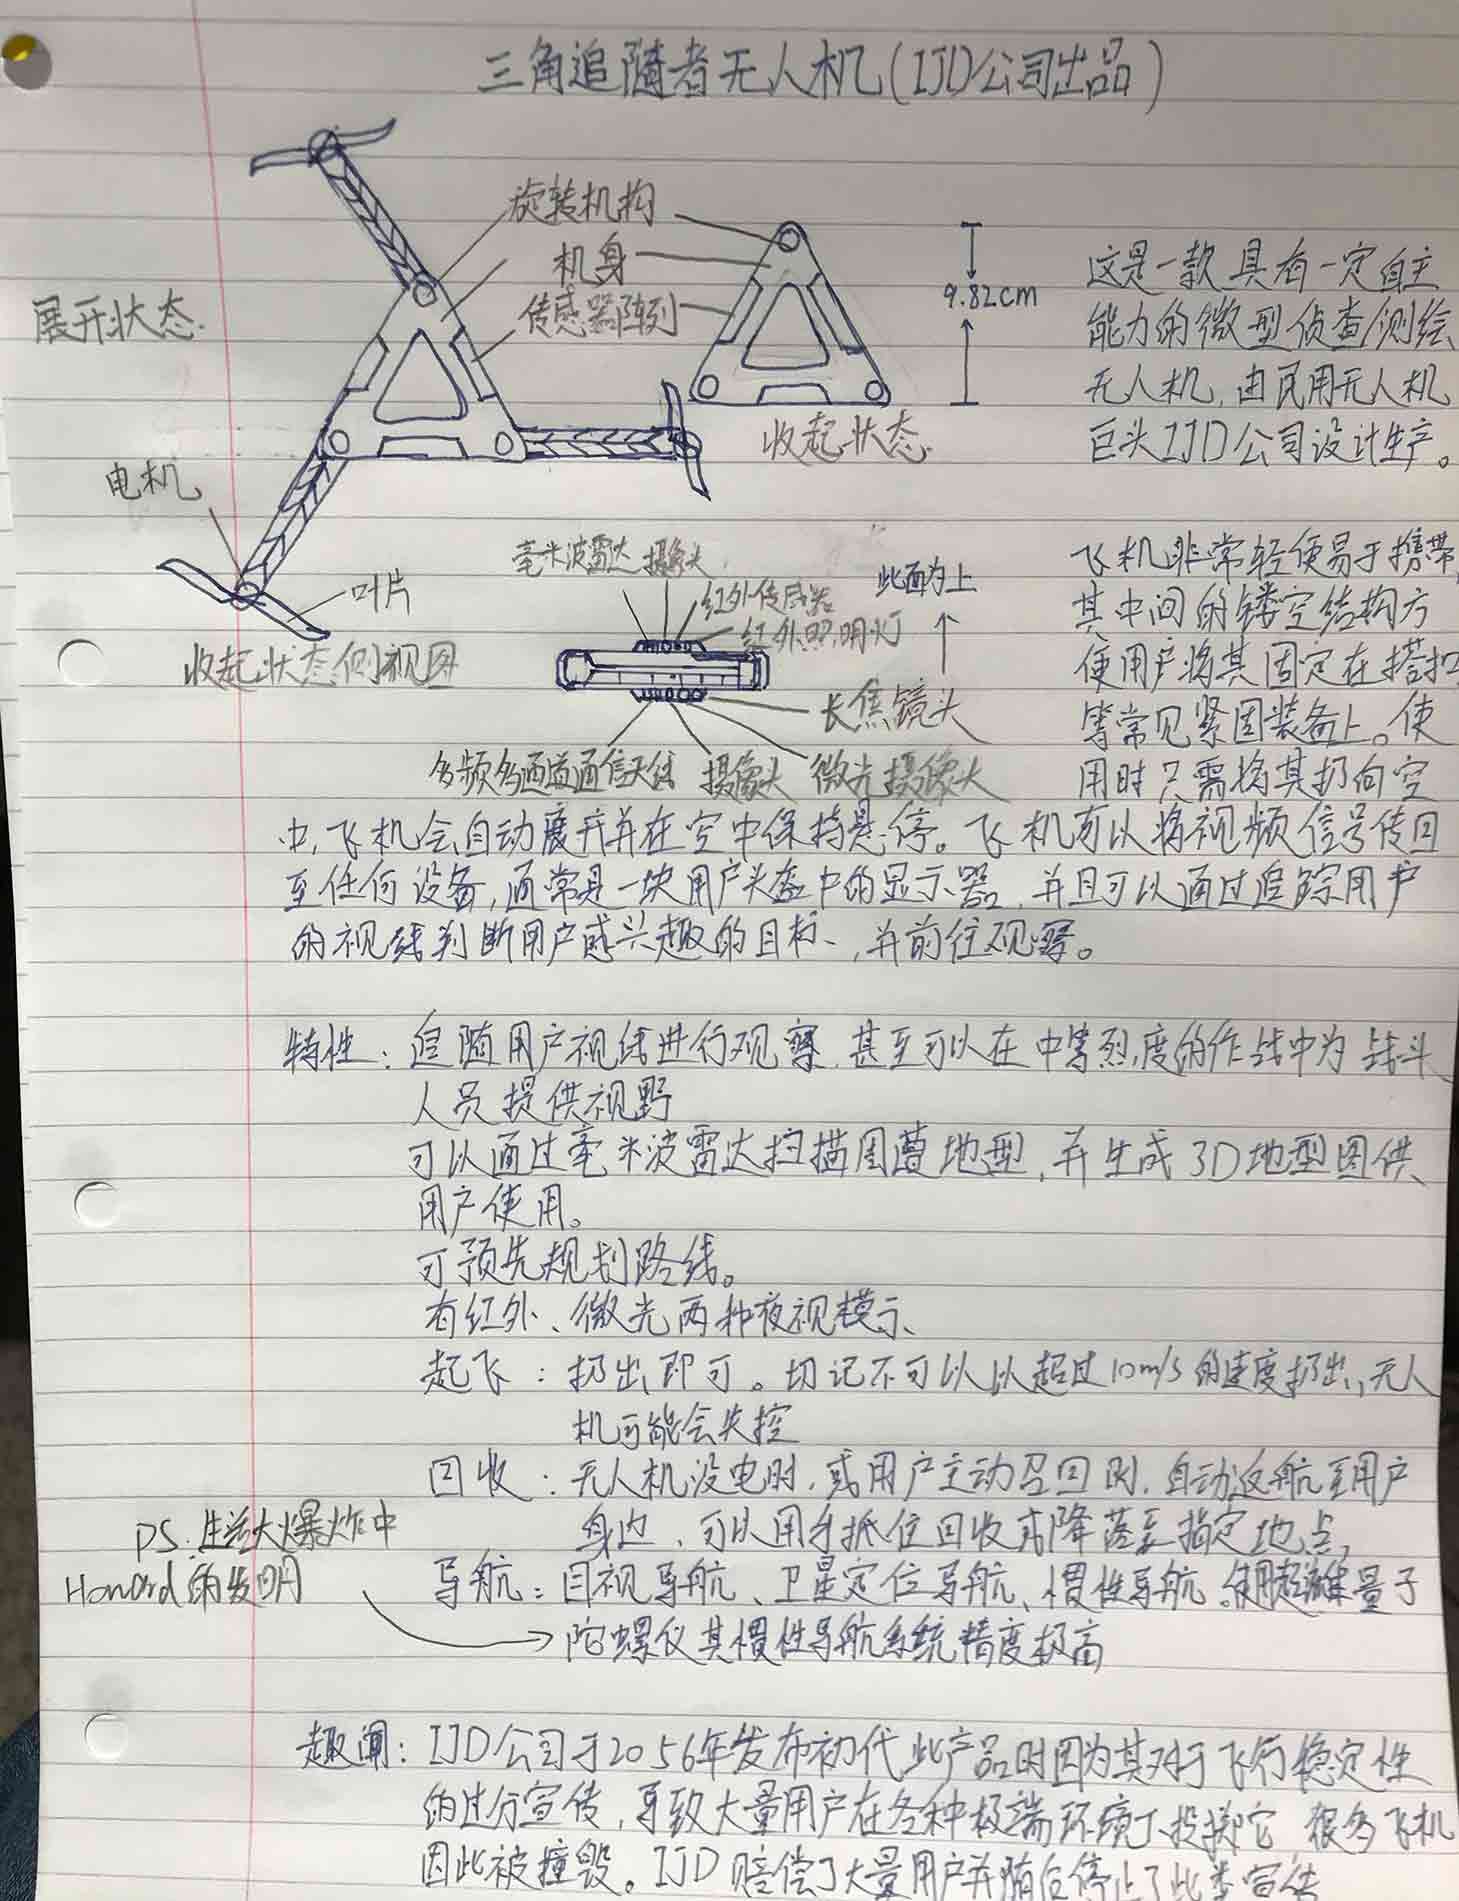 三角追随者无人机(IJD公司出品)
旋转机构
机身
传感器阵列
展开状态
9.82cm
收起状态
电机
叶片
这是一款具有一定自主
能力的微型侦查/测绘
无人机,由民用无人机
巨头IJD公司设计生产。
毫米波雷达 摄象头
红外传感器
红外照明灯
此面为上
收起状态侧视图
长焦镜头
多频多通道通信天线 摄象头 微光摄像头
飞机非常轻便易于携带,
其中间的镂空结构方
便用户将其固定在搭扣
等常见紧固装备上。使
用时只需将其扔向空
中,飞机会自动展开并在空中保持悬停。飞机可以将视频信号传回
至任何设备,通常是一块用户头盔中的显示器,并且可以通过追踪用户
的视线判断用户感兴趣的目标,并前往观察。
特性:追随用户视线进行观察,甚至可以在中等烈度的作战中为战斗
人员提供视野
可以通过毫米波雷达扫描周遭地型,并生成3D地型图供
用户使用。
可预先规划路线。
有红外、微光两种夜视模式
起飞:扔出即可。切记不可以以超过10m/s的速度扔出,无人
机可能会失控
回收:无人机没电时,或用户主动召回时,自动返航至用户
身边,可以用手抓住回收或降落至指定地点。
导航:目视导航、卫星定位导航、惯性导航。使用超流体量子
陀螺仪其惯性导航系统精度极高
PS.生活大爆炸中
Howard的发明
趣闻:IJD公司于2056年发布初代此产品时因为其对于飞行稳定性
的过分宣传,导致大量用户在各种极端环境下投掷它,很多飞机
因此被撞毁。IJD赔偿了大量用户并随后停止了此类宣传